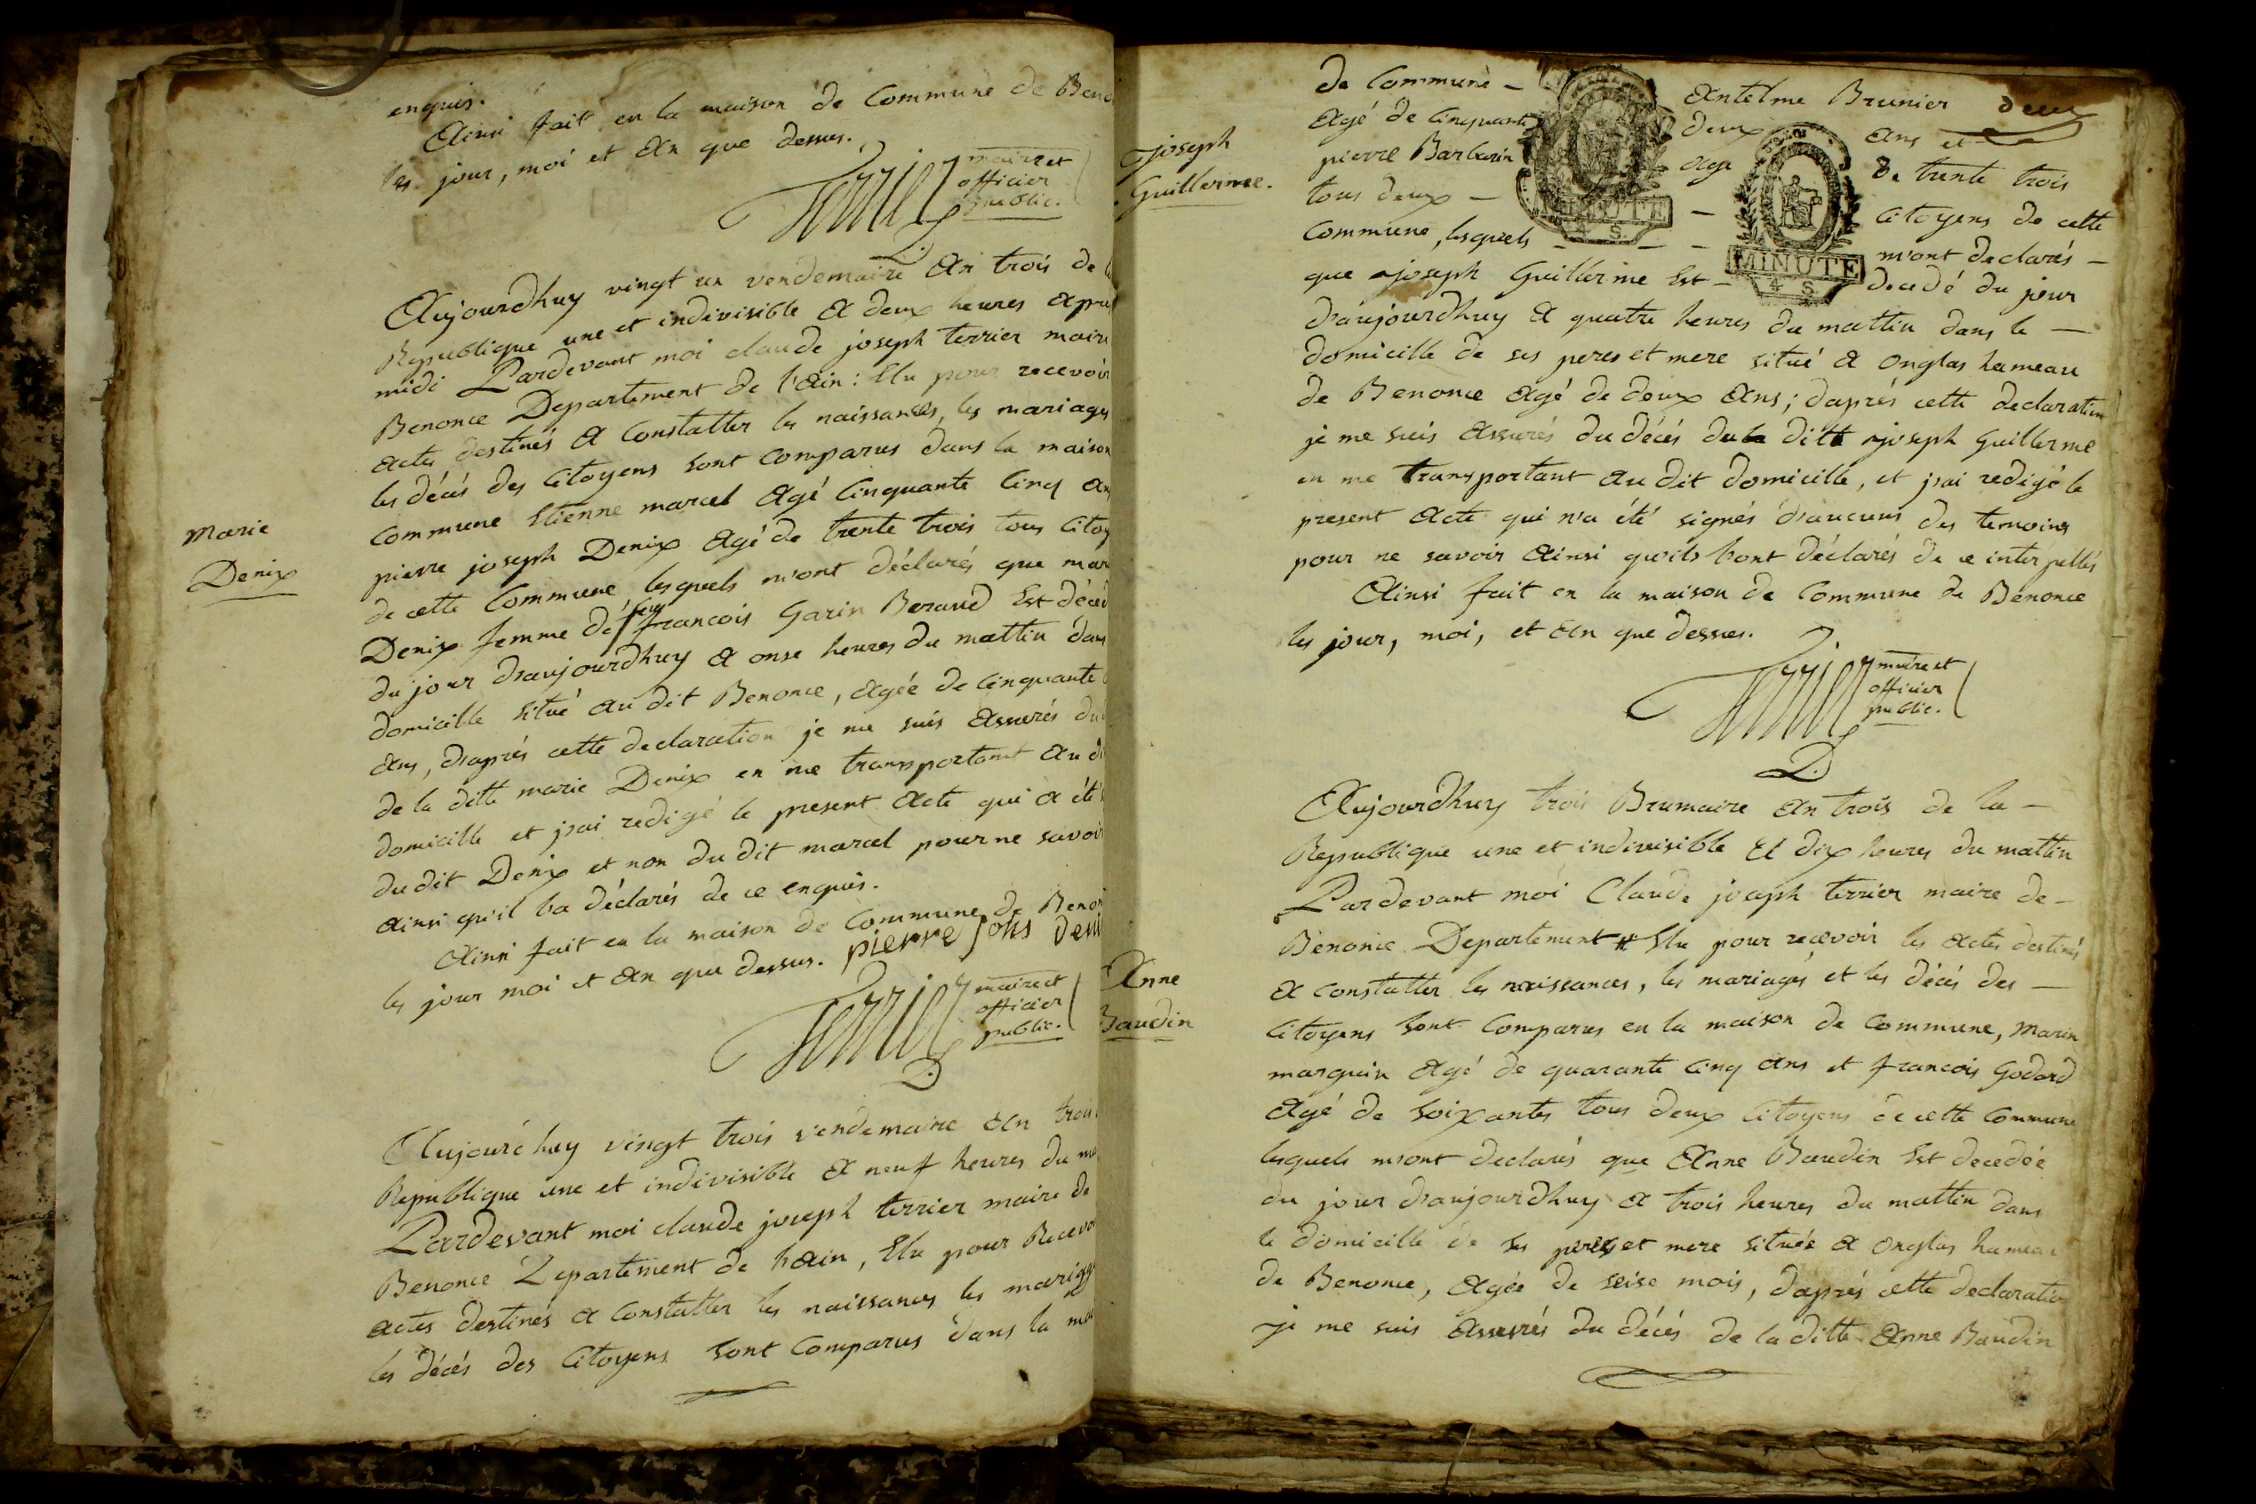 enquis.
Ainsi fait en la maison de Commune de Beno
les jour, moi et an que dessus.
Terrier maire et
officier
public.
Aujourdhuy vingt un vendemaire an trois de la
Republique une et indivisible a deux heures apres
midi Pardevant moi claude joseph terrier maire
Benonce Departement de l'ain: Elu pour recevoir
actes destinés a Constatter les naissances, les mariages
les décés des Citoyens sont comparus dans la maison
Commune Etienne marcel agé Cinquante Cinq ans
pierre joseph Denix agé de trente trois tous Citoy
de cette Commune lesquels m'ont déclarés que mar
Marie
Denix
Denix femme de feu francois Garin Beraud Est décéd
du jour d'aujourdhuy a onse heures du mattin dans
domicille situé au dit Benonce, agée de Cinquante
ans, d'aprés cette declaration je me suis assurés du
de la ditte marie Denix en me transportant au di
domicille et j'ai redigé le present acte qui a été
du dit Denix et non du dit marcel pour ne savoir
ainsi qu'il l'a déclarés de ce enquis.
Ainsi fait en la maison de Commune de Benon
les jour moi et an que dessus. pierre Johs deni
Terrier maire et
officier
public.
Aujourdhuy vingt trois vendemaire an trois
Republique une et indivisible a neuf heures du ma
Pardevant moi claude joseph terrier maire de
Benonce Departement de l'ain, Elu pour Recevo
actes destinés a Constatter les naissances les mariage
les décés des Citoyens sont Comparus dans la mai
joseph
Guillerme.
de Commune - Antelme Brunier deux
agé de Cinquante deux ans et
pierre Barbarin age de trente trois
tous deux - - Citoyens de cette
Commune, lesquels - - - m'ont declarés -
que joseph Guillerme Est - decedé du jour
MINUTE
4 S
MINUTE
4 S
d'aujourdhuy a quatre heures du mattin dans le -
domicille de ses peres et mere situé a onglas hameau
de Benonce agé de deux ans; d'aprés cette declaration
je me suis assurés du décés du ditt joseph Guillerme
en me transportant au dit domicille, et j'ai redigé le
present acte qui n'a été signés d'aucuns des temoins
pour ne savoir ainsi qu'ils l'ont déclarés de ce interpellés
Ainsi fait en la maison de Commune de Benonce
les jour, moi, et an que dessus.
Terrier maire et
officier
public.
Aujourdhuy trois Brumaire an trois de la -
Republique une et indivisible et dix heures du mattin
Pardevant moi Claude joseph terrier maire de -
Benonce Departement # Elu pour recevoir les actes destinés
a constatter les naissances, les mariages et les décés des -
Citoyens sont Comparus en la maison de Commune, Marin
Anne
Baudin
marguin agé de quarante Cinq ans et francois Godard
agé de soixantes tous deux Citoyens de cette Commune
lesquels m'ont declarés que Anne Baudin Est decedée
du jour d'aujourdhuy a trois heures du mattin dans
le domicille de ses peres et mere située a onglas hameau
de Benonce, agée de seise mois, d'aprés cette declaration
je me suis assurés du décés de la ditte Anne Baudin